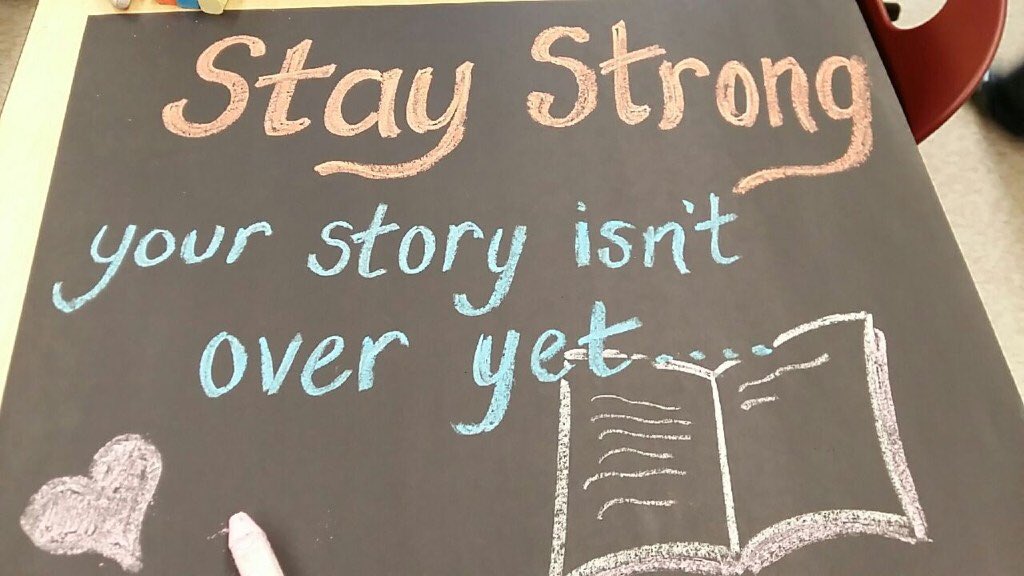 Stay Strong
your story isn't
over yet...